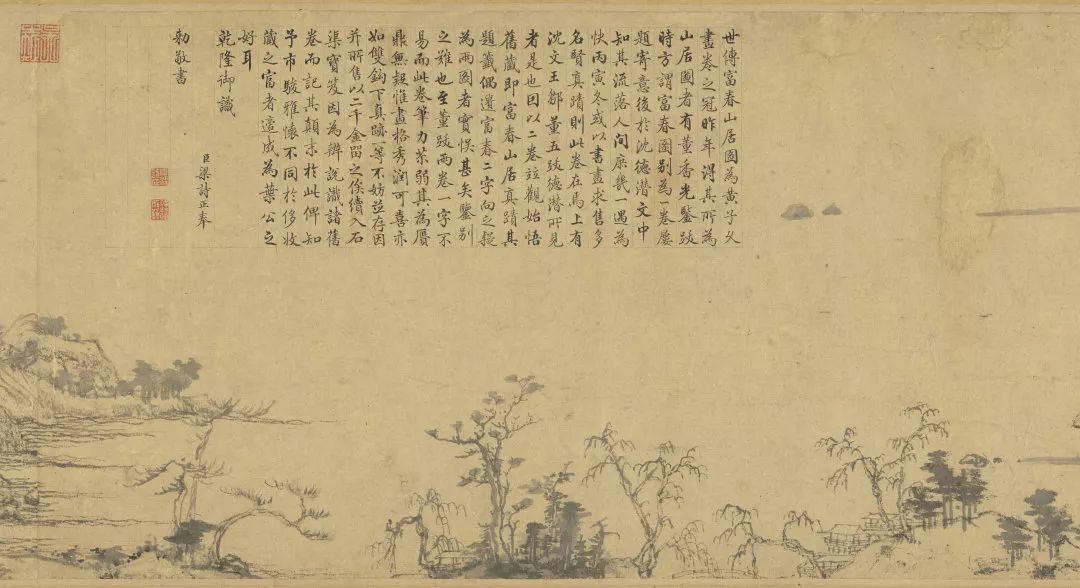 世傳富春山居圖為黃子久
畫卷之冠昨年得其所為
山居圖者有董香光鑒跋
時方謂富春圖別為一卷屢
題寄意後於沈德潛文中
知其流落人間庶幾一遇為
快丙寅冬或以書畫求售多
名賢真蹟則此卷在焉上有
沈文王鄒董五跋德潛所見
者是也因以二卷竝觀始悟
舊藏即富春山居真蹟其
題籤偶遺富春二字向之疑
為兩圖者實悞甚矣鑒別
之難也至董跋兩卷一字不
易而此卷筆力苶弱其為贋
鼎無疑惟畫格秀潤可喜亦
如雙鉤下真跡一等不妨竝存因
并所售以二千金留之俟續入石
渠寶笈因為辨說識諸舊
卷而記其顛末於此俾知
予市駿雅懷不同於侈收
藏之富者適成為葉公之
好耳
乾隆御識
臣梁詩正奉
勅敬書